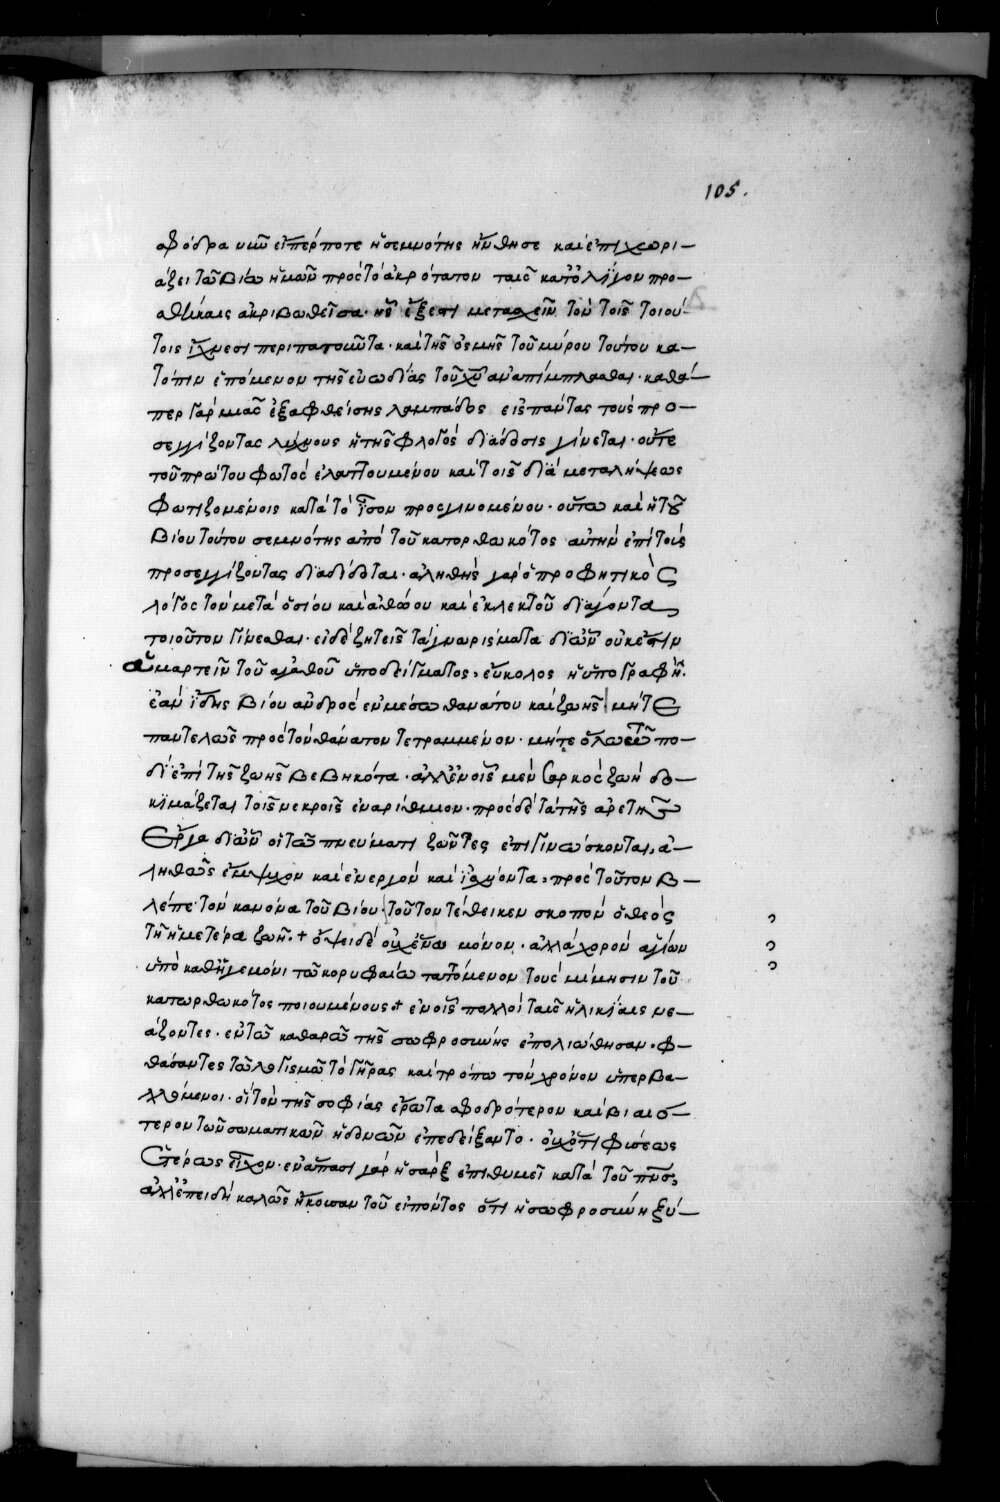 105.
σφόδρα νῦν εἴπερ ποτε ἡ σεμνότης ἤνθησε καὶ ἐπιχωρι-
άζει τῶ βίω ἡμῶν πρὸς τὸ ἀκρότατον ταῖς κατ' ὀλίγον προ-
σθήκαις ἀκριβωθεῖσα· ἧς ἔξεστι μετασχεῖν τὸν τοῖς τοιού-
τοις ἴχνεσι περιπατοῦντα· καὶ τῆς ὀσμῆς τοῦ μύρου τούτου κα-
τόπιν ἑπόμενον τῆς εὐωδίας τοῦ χῦ ἀναπίμπλασθαι· καθά-
περ γὰρ μιᾶς ἐξαφθείσης λαμπάδος εἰς πάντας τοὺς προ-
σεγγίζοντας λύχνους ἡ τῆς φλογὸς διάδοσις γίνεται· οὔτε
τοῦ πρώτου φωτὸς ἐλαττουμένου καὶ τοῖς διὰ μεταλήψεως
φωτιζομένοις κατὰ τὸ ἴσον προσγινομένου· οὕτω καὶ ἡ τοῦ
βίου τούτου σεμνότης ἀπὸ τοῦ κατορθωκότος αὐτὴν ἐπὶ τοὺς
προσεγγίζοντας διαδίδοται· ἀληθὴς γὰρ ὁ προφητικὸς
λόγος τὸν μετὰ ὁσίου καὶ ἀθώου καὶ ἐκλεκτοῦ διάγοντα
τοιοῦτον γίνεσθαι· εἰ δὲ ζητεῖς τὰ γνωρίσματα δι' ὧν οὐκ ἔστιν
ἁμαρτεῖν τοῦ ἀγαθοῦ ὑποδείγματος, εὔκολος ἡ ὑπογραφή.
ἐὰν ἴδης βίον ἀνδρὸς ἐν μέσω θανάτου καὶ ζωῆς μήτε
παντελῶς πρὸς τὸν θάνατον τετραμμένον· μήτε ὅλω τῶ πο-
δὶ ἐπὶ τῆς ζωῆς βεβηκότα· ἀλλ' ἐν οἷς μὲν σαρκὸς ζωὴ δο-
κιμάζεται τοῖς νεκροῖς ἐναρίθμιον· πρὸς δὲ τὰ τῆς ἀρετῆς
ἔργα δι' ὧν οἱ τῶ πνεύματι ζῶντες ἐπιγινώσκονται, ἀ-
ληθῶς ἔμψυχον καὶ ἐνεργὸν καὶ ἰσχύοντα, πρὸς τοῦτον β-
λέπε τὸν κανόνα τοῦ βίου· τοῦτον τέθεικεν σκοπὸν ὁ θεὸς
τῆ ἡμετέρα ζωῆ.+ ὄψει δὲ οὐχ ἕνα μόνον· ἀλλὰ χορὸν ἁγίων
ὑπὸ καθηγεμόνι τῶ κορυφαίω ταττόμενον τοὺς μίμησιν τοῦ
κατωρθωκότος ποιουμένους+ ἐν οἷς πολλοὶ ταῖς ἡλικίαις νε-
άζοντες· ἐν τῶ καθαρῶ τῆς σωφροσύνης ἐπολιώθησαν· φ-
θάσαντες τῶ λογισμῶ τὸ γῆρας καὶ τρόπω τὸν χρόνον ὑπερβα-
λλόμενοι· οἳ τὸν τῆς σοφίας ἔρωτα σφοδρότερον καὶ βιαιό-
τερον τῶν σωματικῶν ἡδονῶν ἐπεδείξαντο· οὐχ ὅτι φύσεως
ἑτέρως εἶχον· ἐν ἅπασι γὰρ ἡ σὰρξ ἐπιθυμεῖ κατὰ τοῦ πνς,
ἀλλ' ἐπειδὴ καλῶς ἤκουσαν τοῦ εἰπόντος ὅτι ἡ σωφροσύνη ξύ-